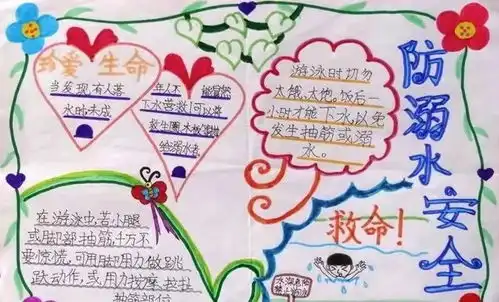 珍爱生命
当发现有人落
水时未成
年人不能冒然
下水营救可以将
救生圈木板等抛
给溺水者
游泳时切勿
太饿、太饱。饭后一
小时才能下水,以免
发生抽筋或溺
水。
防溺水安全
救命!
在游泳中若小腿
或脚部抽筋,千万不
要惊慌,可用脚用力做跳
跃动作,或用力按摩、拉扯
抽筋部位